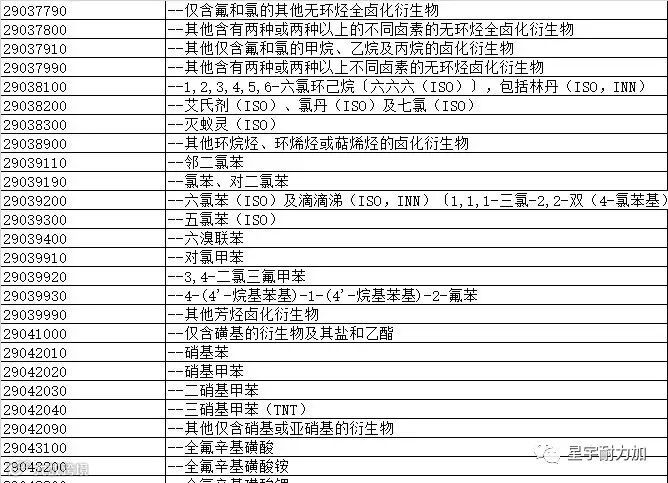 29037790 --仅含氟和氯的其他无环烃全卤化衍生物
29037800 --其他含有两种或两种以上的不同卤素的无环烃全卤化衍生物
29037910 --其他仅含氟和氯的甲烷、乙烷及丙烷的卤化衍生物
29037990 --其他含有两种或两种以上不同卤素的无环烃卤化衍生物
29038100 --1,2,3,4,5,6-六氯环己烷〔六六六（ISO）〕,包括林丹（ISO,INN）
29038200 --艾氏剂（ISO）、氯丹（ISO）及七氯（ISO）
29038300 --灭蚁灵（ISO）
29038900 --其他环烷烃、环烯烃或萜烯烃的卤化衍生物
29039110 --邻二氯苯
29039190 --氯苯、对二氯苯
29039200 --六氯苯（ISO）及滴滴涕（ISO,INN）〔1,1,1-三氯-2,2-双（4-氯苯基）
29039300 --五氯苯（ISO）
29039400 --六溴联苯
29039910 --对氯甲苯
29039920 --3,4-二氯三氟甲苯
29039930 --4-(4'-烷基苯基)-1-(4'-烷基苯基)-2-氟苯
29039990 --其他芳烃卤化衍生物
29041000 --仅含磺基的衍生物及其盐和乙酯
29042010 --硝基苯
29042020 --硝基甲苯
29042030 --二硝基甲苯
29042040 --三硝基甲苯（TNT）
29042090 --其他仅含硝基或亚硝基的衍生物
29043100 --全氟辛基磺酸
29043200 --全氟辛基磺酸铵
星宇耐力加